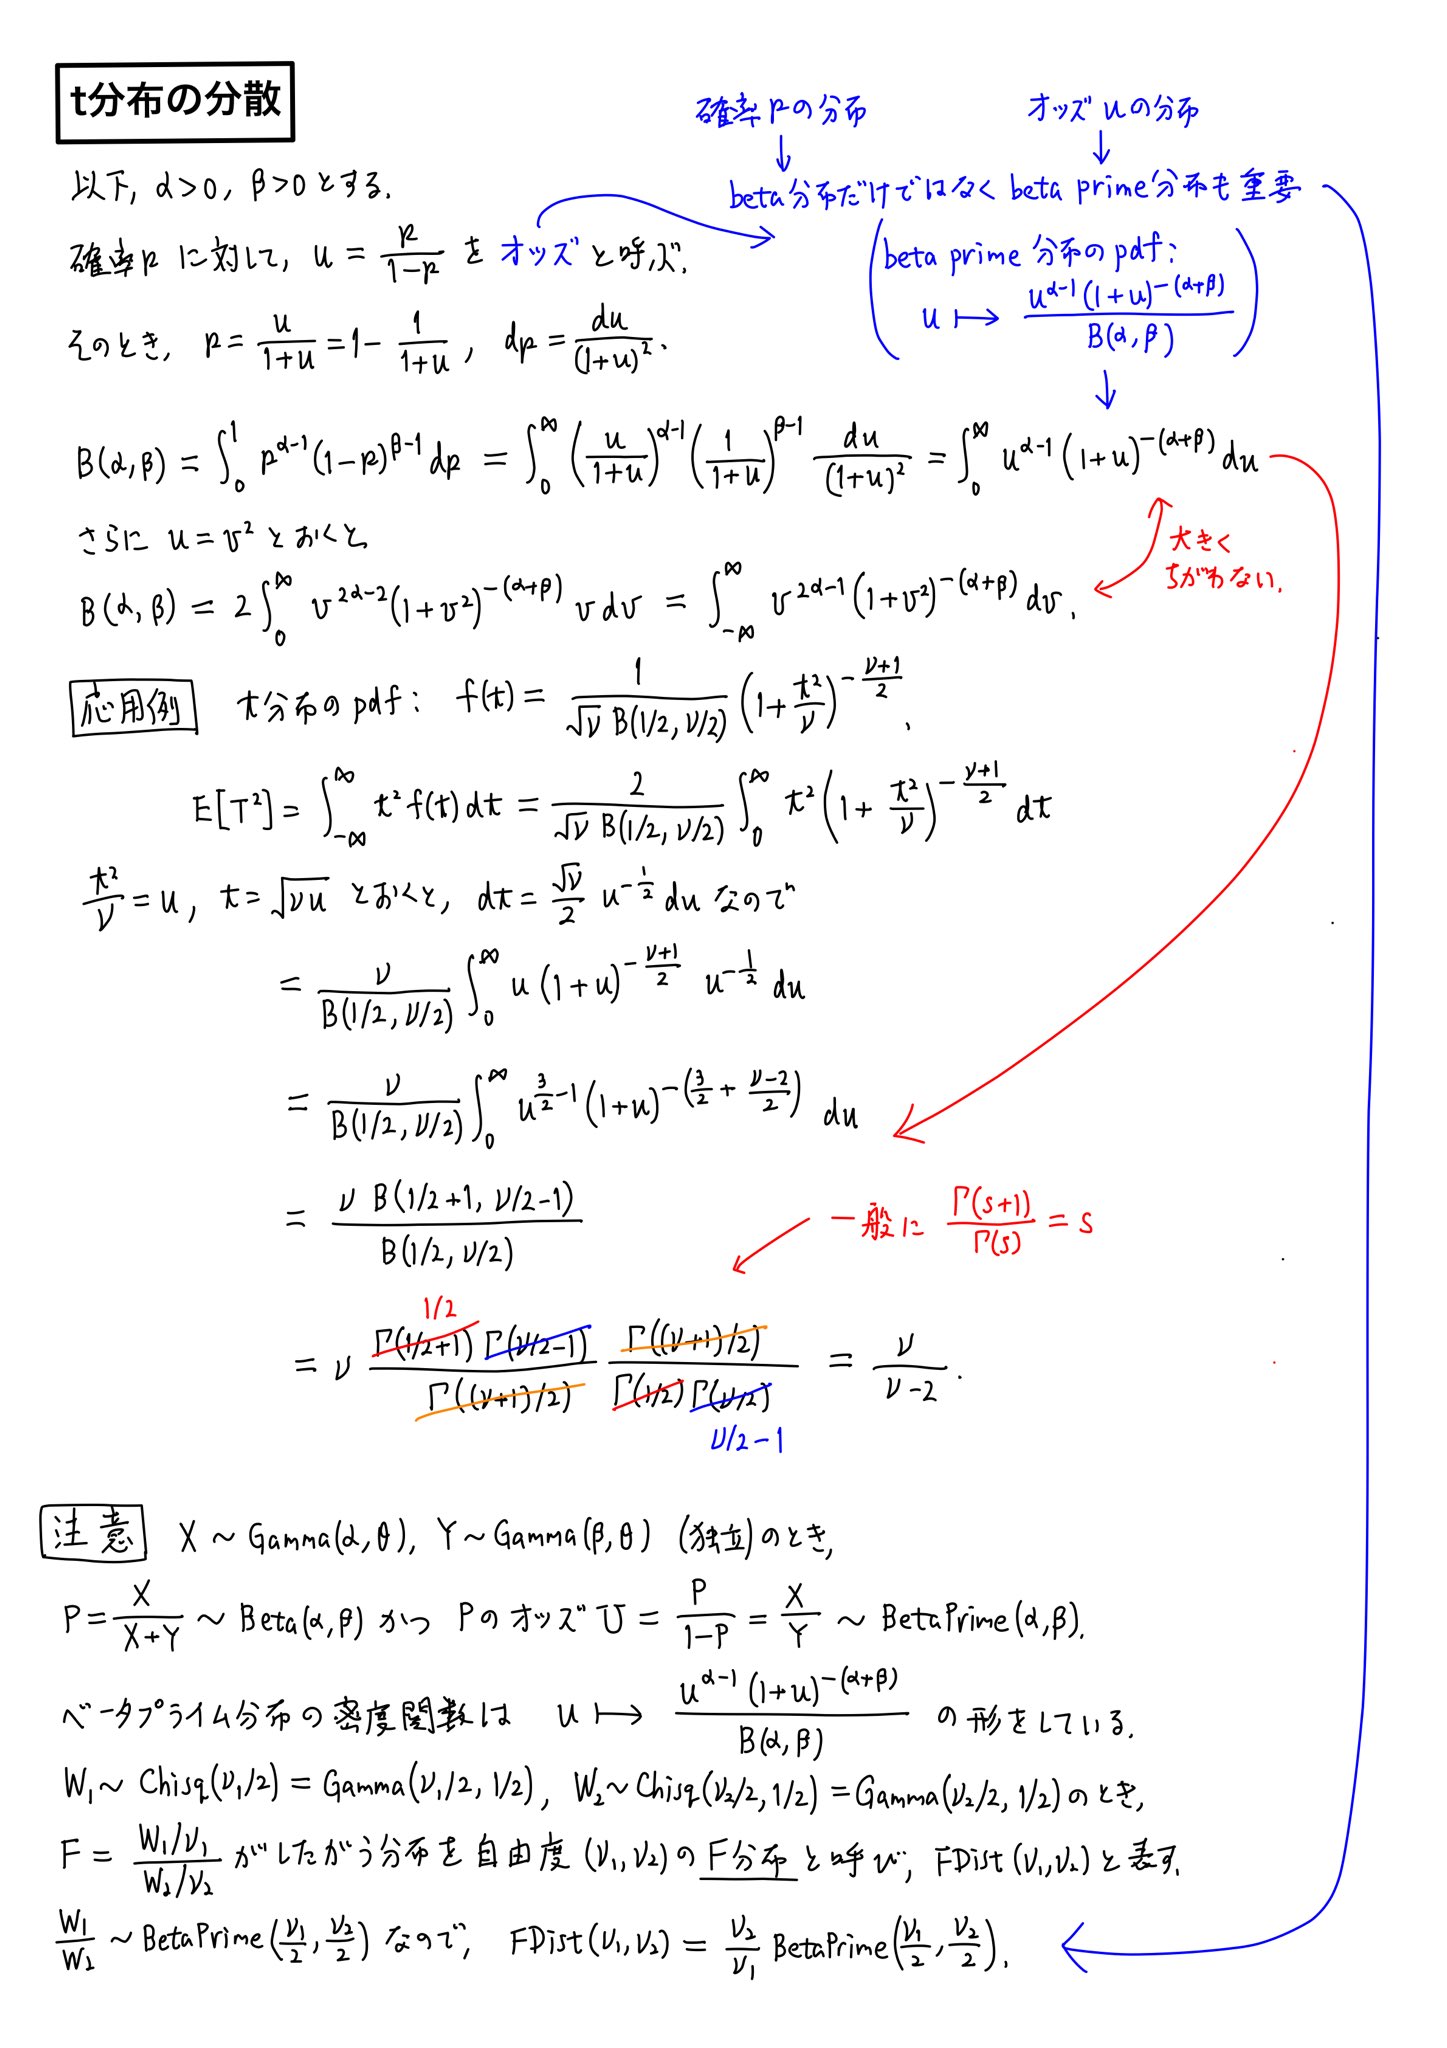 t分布の分散
確率pの分布 オッズuの分布
↓ ↓
beta分布だけではなく beta prime分布も重要
以下, α>0, β>0とする.
確率pに対して, u = p/(1-p) を オッズ と呼ぶ.
(beta prime 分布のpdf:
u ↦ u^{α-1}(1+u)^{-(α+β)} / B(α,β))
そのとき, p = u/(1+u) = 1 - 1/(1+u), dp = du/(1+u)^2.
B(α,β) = ∫_0^1 p^{α-1}(1-p)^{β-1} dp = ∫_0^∞ (u/(1+u))^{α-1} (1/(1+u))^{β-1} du/(1+u)^2 = ∫_0^∞ u^{α-1}(1+u)^{-(α+β)} du
さらに u = v^2 とおくと
大きく
ちがわない.
B(α,β) = 2∫_0^∞ v^{2α-2}(1+v^2)^{-(α+β)} v dv = ∫_{-∞}^∞ v^{2α-1}(1+v^2)^{-(α+β)} dv.
応用例 t分布のpdf: f(t) = 1/(√ν B(1/2, ν/2)) (1 + t^2/ν)^{-(ν+1)/2}.
E[T^2] = ∫_{-∞}^∞ t^2 f(t) dt = 2/(√ν B(1/2, ν/2)) ∫_0^∞ t^2 (1 + t^2/ν)^{-(ν+1)/2} dt
t^2/ν = u, t = √(νu) とおくと, dt = (√ν/2) u^{-1/2} du なので
= ν/B(1/2, ν/2) ∫_0^∞ u (1+u)^{-(ν+1)/2} u^{-1/2} du
= ν/B(1/2, ν/2) ∫_0^∞ u^{3/2-1} (1+u)^{-(3/2 + (ν-2)/2)} du
= ν B(1/2+1, ν/2-1) / B(1/2, ν/2)
一般に Γ(s+1)/Γ(s) = s
1/2
= ν Γ(1/2+1) Γ(ν/2-1) / Γ((ν+1)/2) Γ((ν+1)/2) / Γ(1/2) Γ(ν/2) = ν/(ν-2).
ν/2-1
注意 X ~ Gamma(α,θ), Y ~ Gamma(β,θ) (独立)のとき,
P = X/(X+Y) ~ Beta(α,β) かつ Pのオッズ U = P/(1-P) = X/Y ~ BetaPrime(α,β).
ベータプライム分布の密度関数は u ↦ u^{α-1}(1+u)^{-(α+β)} / B(α,β) の形をしている.
W₁ ~ Chisq(ν₁/2) = Gamma(ν₁/2, 1/2), W₂ ~ Chisq(ν₂/2, 1/2) = Gamma(ν₂/2, 1/2)のとき,
F = (W₁/ν₁)/(W₂/ν₂) がしたがう分布を自由度 (ν₁,ν₂)のF分布と呼び, FDist(ν₁,ν₂)と表す.
W₁/W₂ ~ BetaPrime(ν₁/2, ν₂/2) なので, FDist(ν₁,ν₂) = ν₂/ν₁ BetaPrime(ν₁/2, ν₂/2).